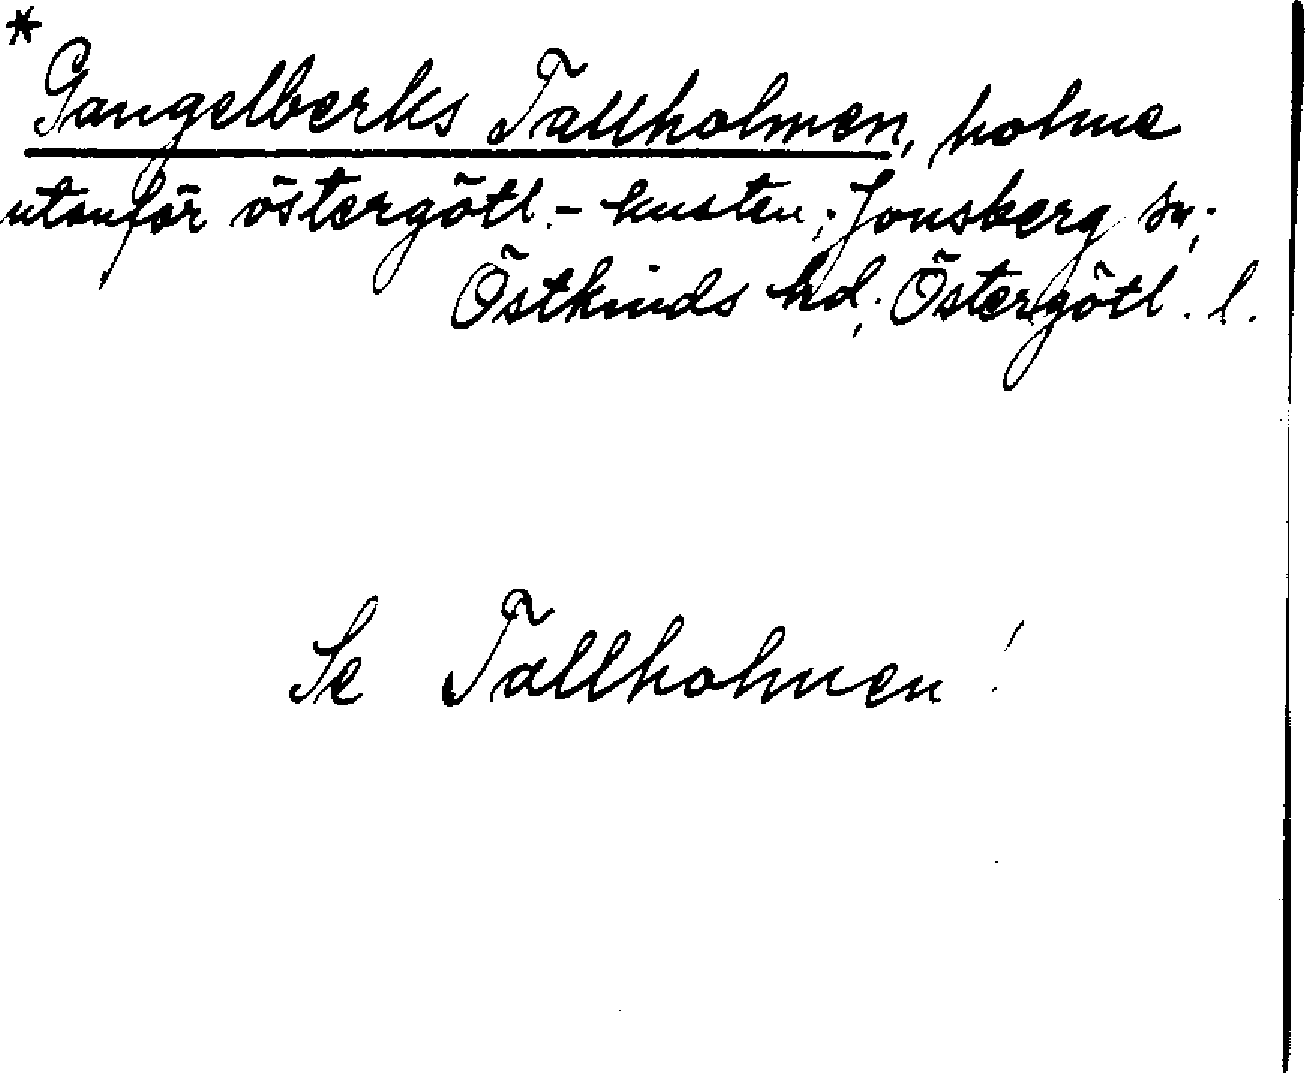 * Gangelberks Tallholmen, holme
utanför östergötl.-kusten; Jonsberg sn;
Östkinds hd; Östergötl. l.
Se Tallholmen!